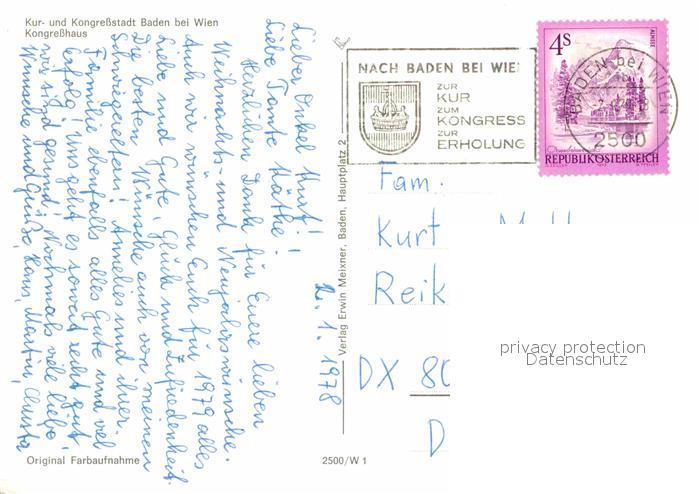 Kur- und Kongreßstadt Baden bei Wien
Kongreßhaus
Lieber Onkel Kurt!
Liebe Tante Käthe!
Herzlichen Dank für Euere lieben
Weihnachts- und Neujahrswünsche.
Auch wir wünschen Euch für 1979 alles
Liebe und Gute, Glück und Zufriedenheit.
Die besten Wünsche auch von meinen
Schwiegereltern! Annelies und ihrer
Familie ebenfalls alles Gute und viel
Erfolg! Uns geht es soweit recht gut,
wir sind gesund! Nochmals viele liebe
Wünsche und Grüße, Hans, Martin, Christa
2. 1. 1978
Original Farbaufnahme
2500/W 1
Verlag Erwin Meixner, Baden, Hauptplatz 2
NACH BADEN BEI WIE
ZUR
KUR
ZUM
KONGRESS
ZUR
ERHOLUNG
4S
ALMSEE
BADEN bei WIEN
2500
REPUBLIK ÖSTERREICH
Fam.
Kurt
Reik
DX 80
D
privacy protection
Datenschutz